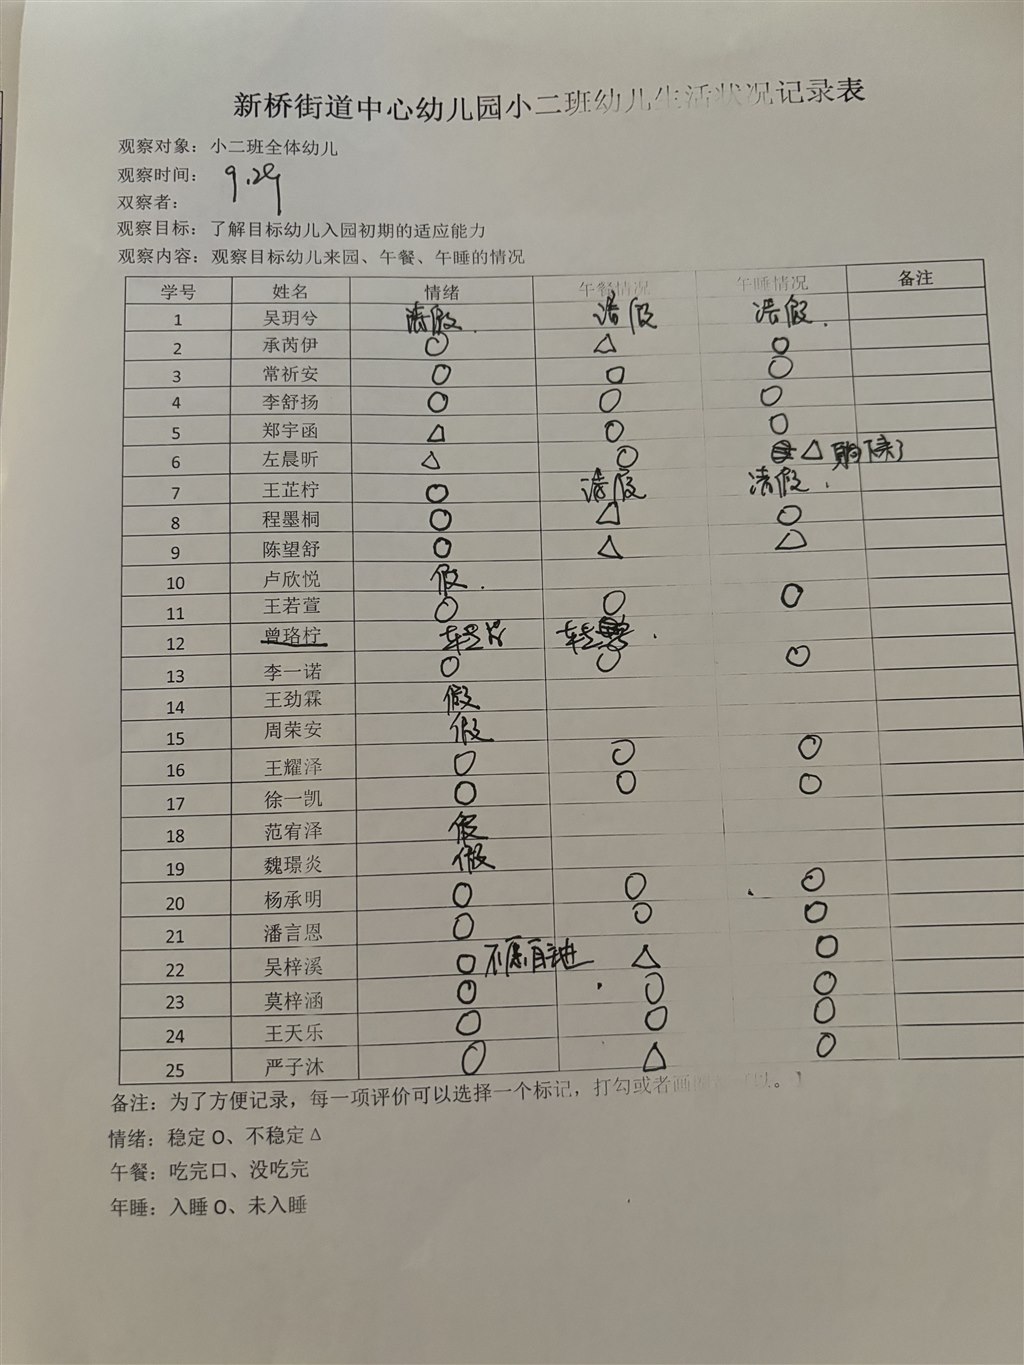 新桥街道中心幼儿园小二班幼儿生活状况记录表
观察对象：小二班全体幼儿
观察时间： 9.29
双察者：
观察目标：了解目标幼儿入园初期的适应能力
观察内容：观察目标幼儿来园、午餐、午睡的情况
学号 姓名 情绪 午餐情况 午睡情况 备注
1 吴玥兮 请假. 请假 请假.
2 承芮伊 O △ O
3 常祈安 O O O
4 李舒扬 O O O
5 郑宇函 △ O O
6 左晨昕 △ O △
7 王芷柠 O 请假 请假.
8 程墨桐 O △ O
9 陈望舒 O △ △
10 卢欣悦 假.
11 王若萱 O O O
12 曾珞柠
13 李一诺 O O O
14 王劲霖 假
15 周荣安 假
16 王耀泽 O O O
17 徐一凯 O O O
18 范宥泽 假
19 魏璟炎 假
20 杨承明 O O O
21 潘言恩 O O O
22 吴梓溪 O 不愿自主进 △ O
23 莫梓涵 O O O
24 王天乐 O O O
25 严子沐 O △ O
备注：为了方便记录，每一项评价可以选择一个标记，打勾或者画圈都可以。】
情绪：稳定 O、不稳定 Δ
午餐：吃完口、没吃完
年睡：入睡 O、未入睡